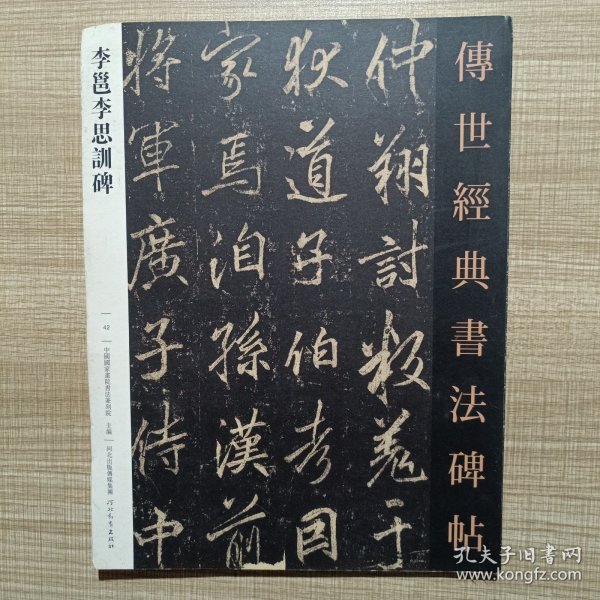 傳世經典書法碑帖
仲翔討叛羌于
狄道子伯考因
家焉洎孫漢前
將軍廣子侍中
李邕李思訓碑
42
中國國家畫院書法篆刻院 主編
河北出版傳媒集團
河北教育出版社
孔夫子旧书网
www.kongfz.com